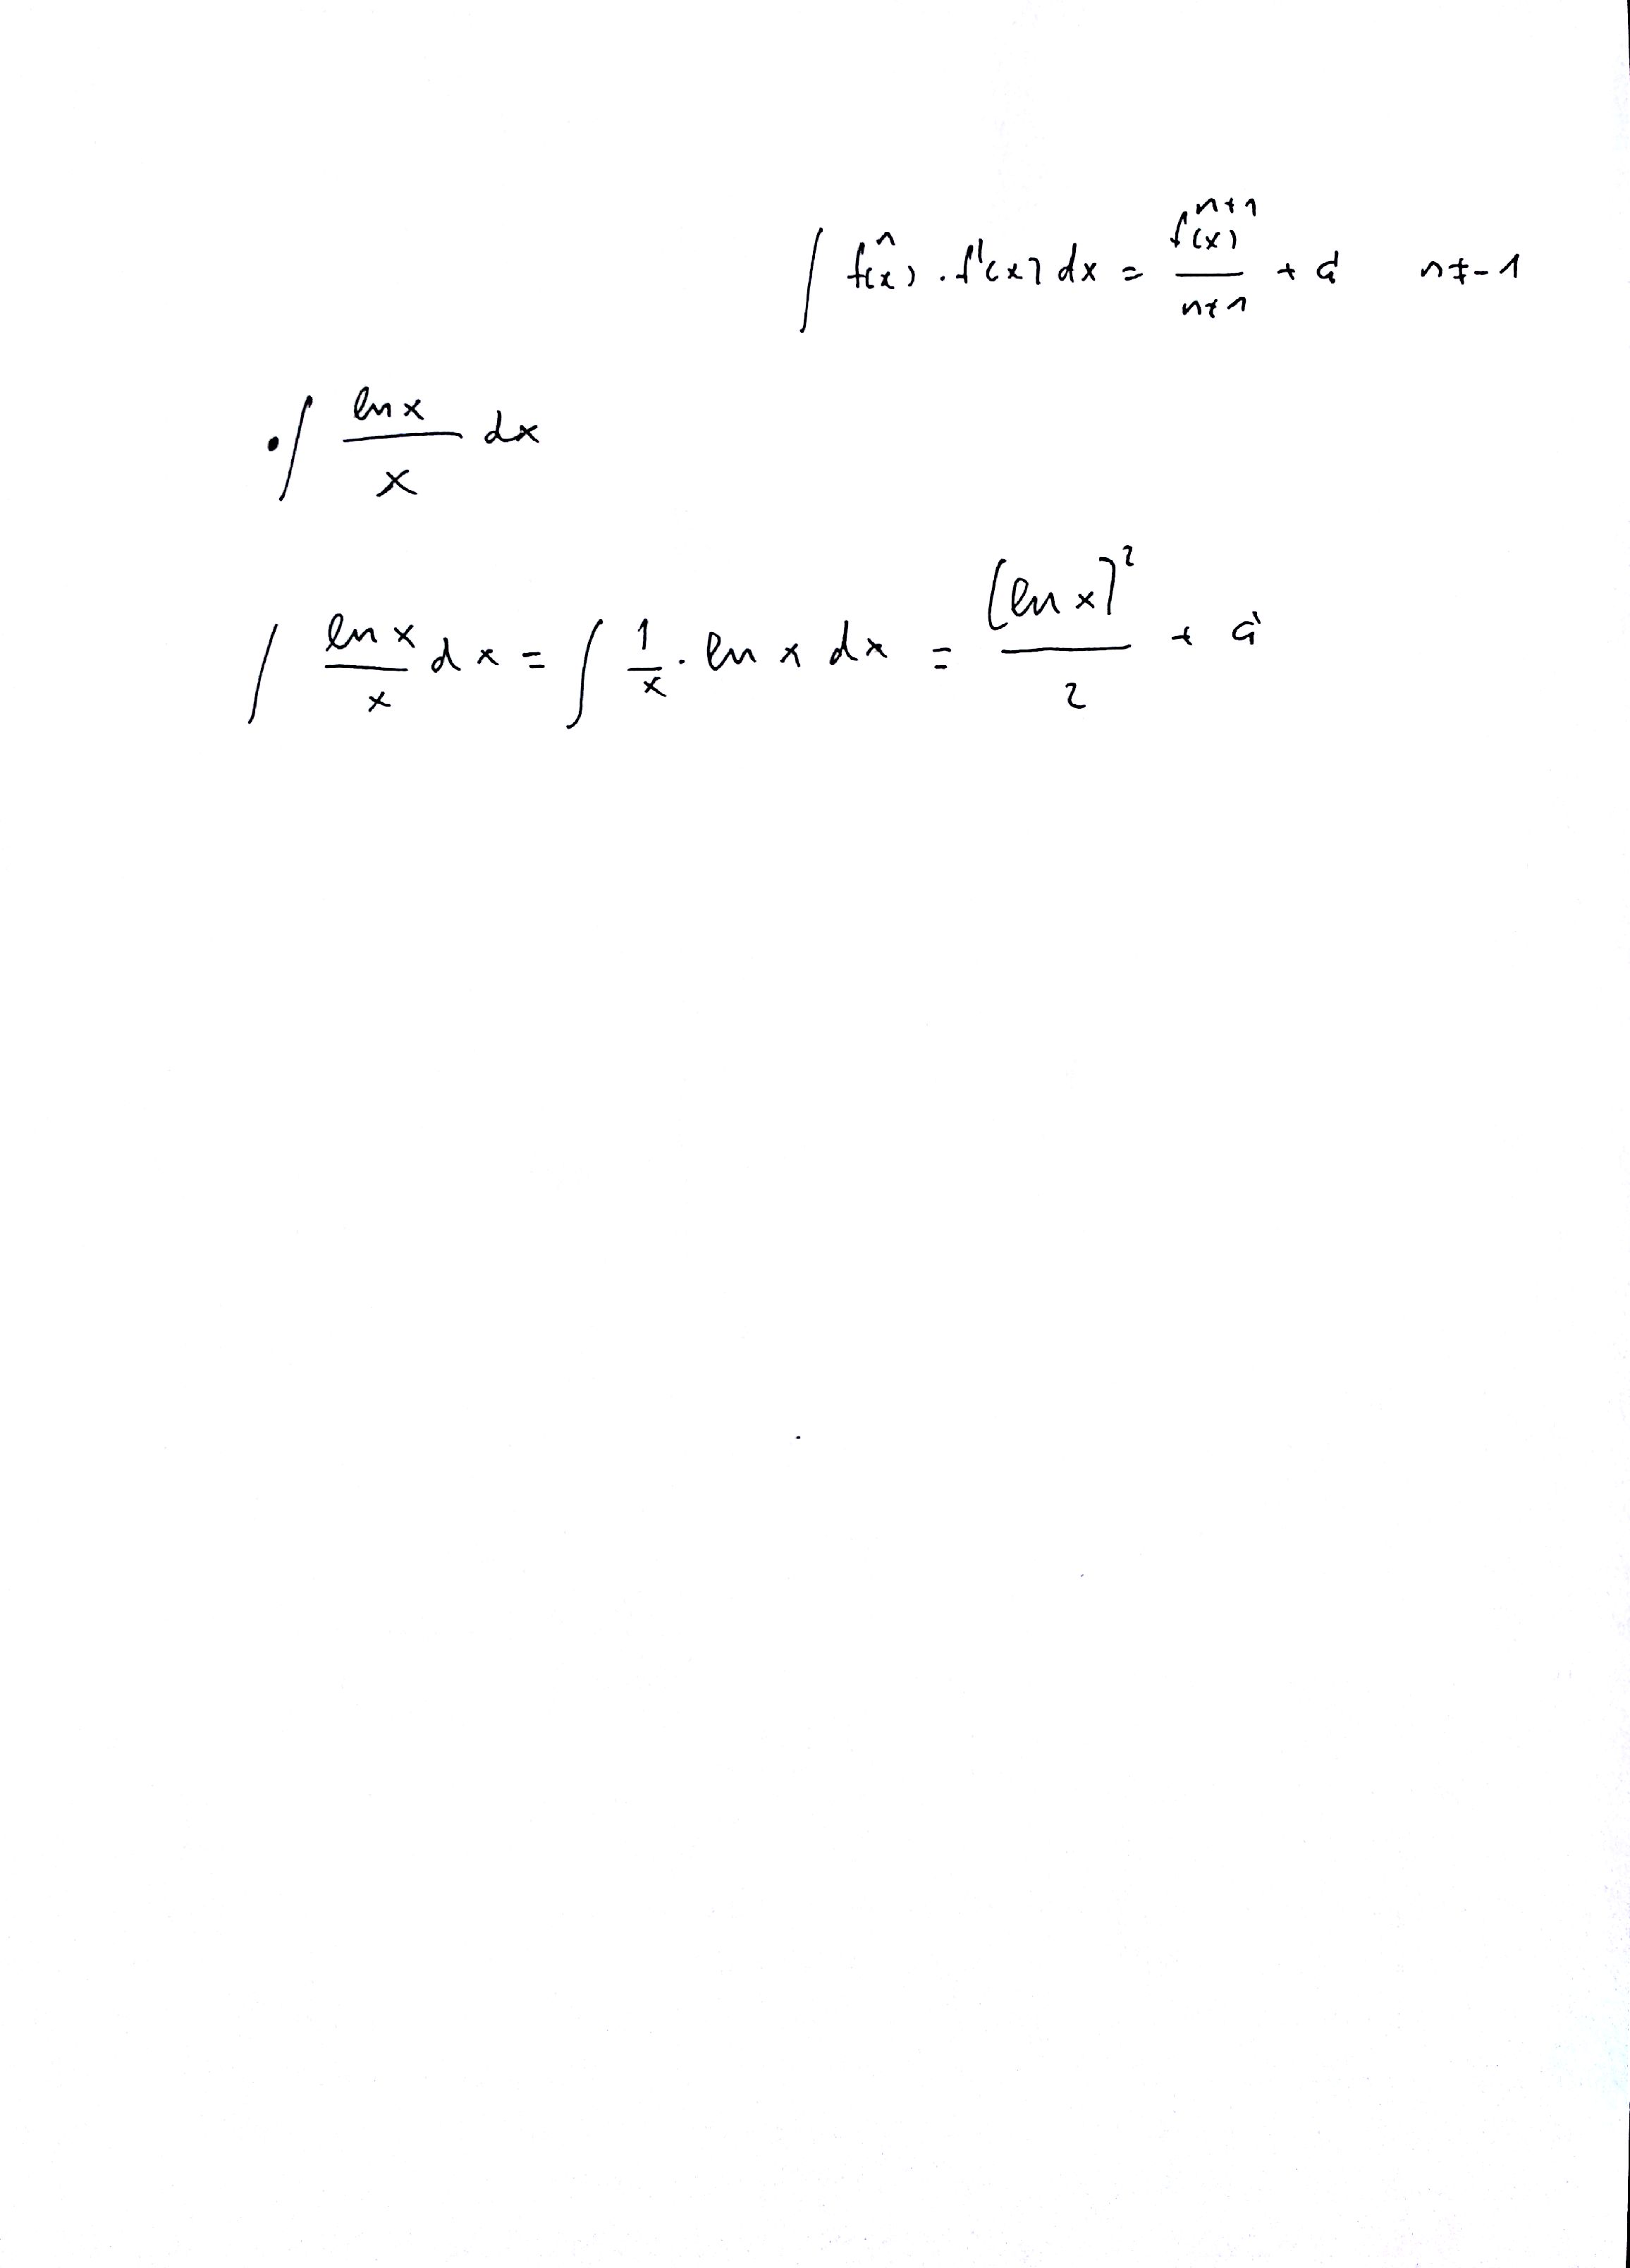 ∫ fⁿ(x) · f'(x) dx = fⁿ⁺¹(x) / (n+1) + C n ≠ -1
• ∫ ln x / x dx
∫ ln x / x dx = ∫ 1/x · ln x dx = (ln x)² / 2 + C